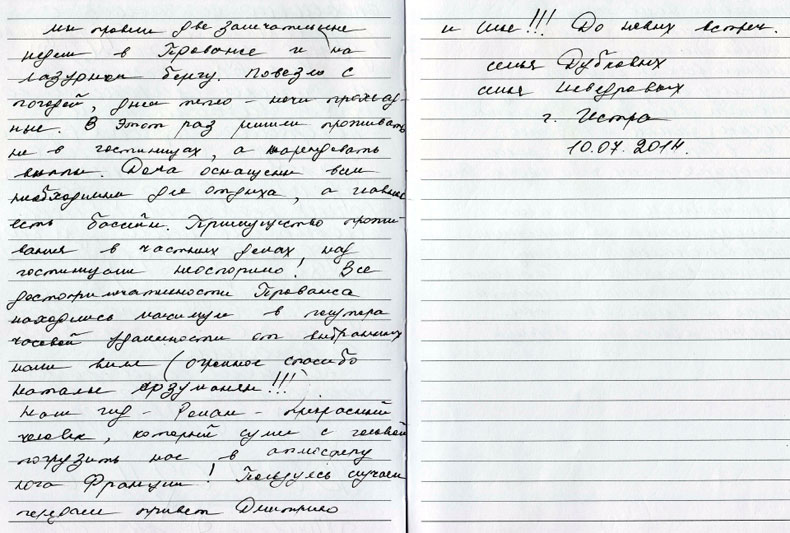 мы провели две замечательные
недели в Провансе и на
лазурном берегу. Повезло с
погодой, днем тепло - ночи прохлад-
ные. В этот раз решили проживать
не в гостиницах, а арендовать
виллы. Дома оснащены всем
необходимым для отдыха, а главное
есть бассейн. Преимущество прожи-
вания в частных домах над
гостиницами неоспоримо! Все
достопримечательности Прованса
находились максимум в полутора
часовой удаленности от выбранных
нами вилл (огромное спасибо
Наталье Арзуманян!!!)
Наш гид - Роман - прекрасный
человек, который сумел с головой
погрузить нас в атмосферу
юга Франции! Пользуясь случаем
передаем привет Дмитрию
и Яне!!! До новых встреч.
семья Дубковых
семья
г. Истра
10.07.2014.